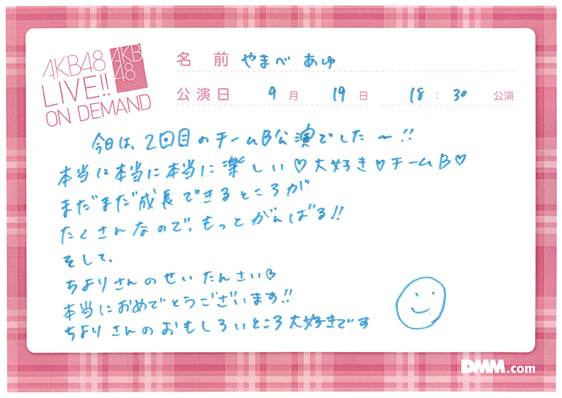 AKB48
LIVE!!
ON DEMAND
AKB
48
名前 やまべ あゆ
公演日 9月 19日 18:30 公演
今日は、2回目のチームB公演でした〜!!
本当に本当に本当に楽しい♡大好き♡チームB♡
まだまだ成長できるところが
たくさんなので、もっとがんばる!!
そして、
ちよりさんのせいたんさい♡
本当におめでとうございます!!
ちよりさんのおもしろいところ大好きです
DMM.com